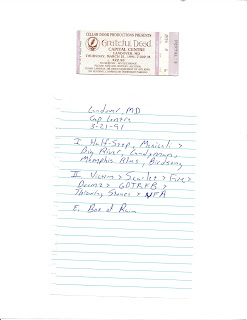 CELLAR DOOR PRODUCTIONS PRESENTS
Grateful Dead
CAPITAL CENTRE
LANDOVER, MD
THURSDAY, MARCH 21, 1991, 7:30P M
Landover, MD
Cap Centre
3-21-91
I Half-Step, Mexicali >
Big River, Candyman,
Memphis Blues, Birdsong
II. Victim > Scarlet > Fire >
Drumz > GDTRFB >
Throwing Stones > NFA
E. Box of Rain